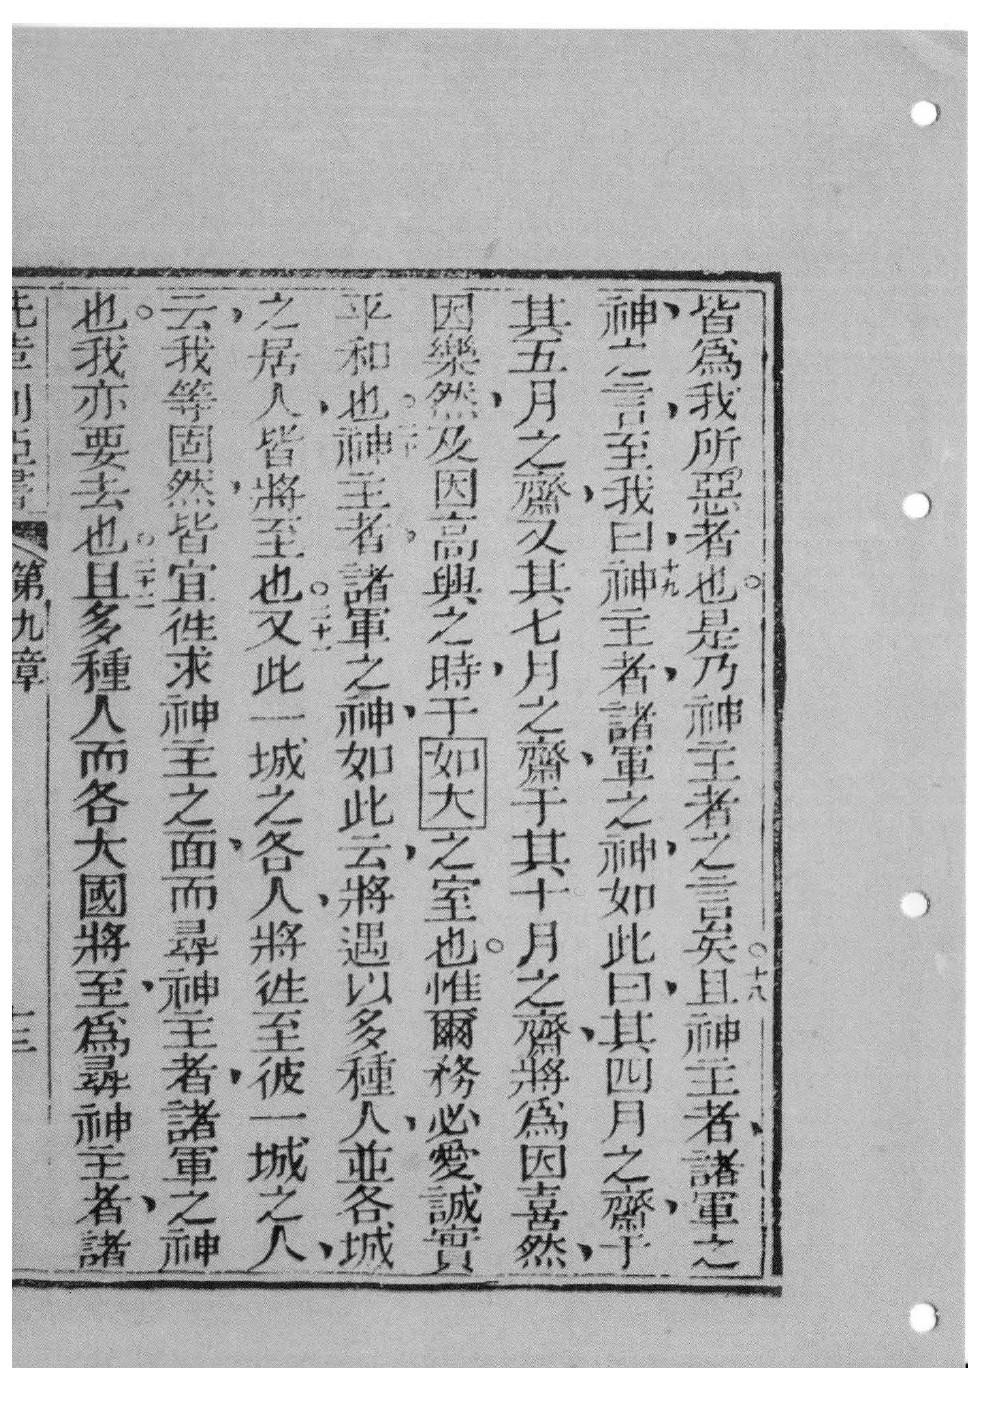 皆爲我所惡者也。是乃神主者之言矣。十八且神主者、諸軍之
神、之言、至我曰、十九神主者、諸軍之神、如此曰、其四月之齋、于
其五月之齋、又其七月之齋、于其十月之齋、將爲因喜然、
因樂然、及因高興之時、于如大之室也。惟爾務必愛誠實
平和也。二十神主者、諸軍之神、如此云、將遇以多種人、並各城
之居人、皆將至也。二十一又此一城之各人、將徃至彼一城之人、
云、我等固然、皆宜徃求神主之面、而尋神主者、諸軍之神
也。我亦要去也。二十二且多種人而各大國將至、爲尋神主者、諸
先至利亞書 第九章 十三